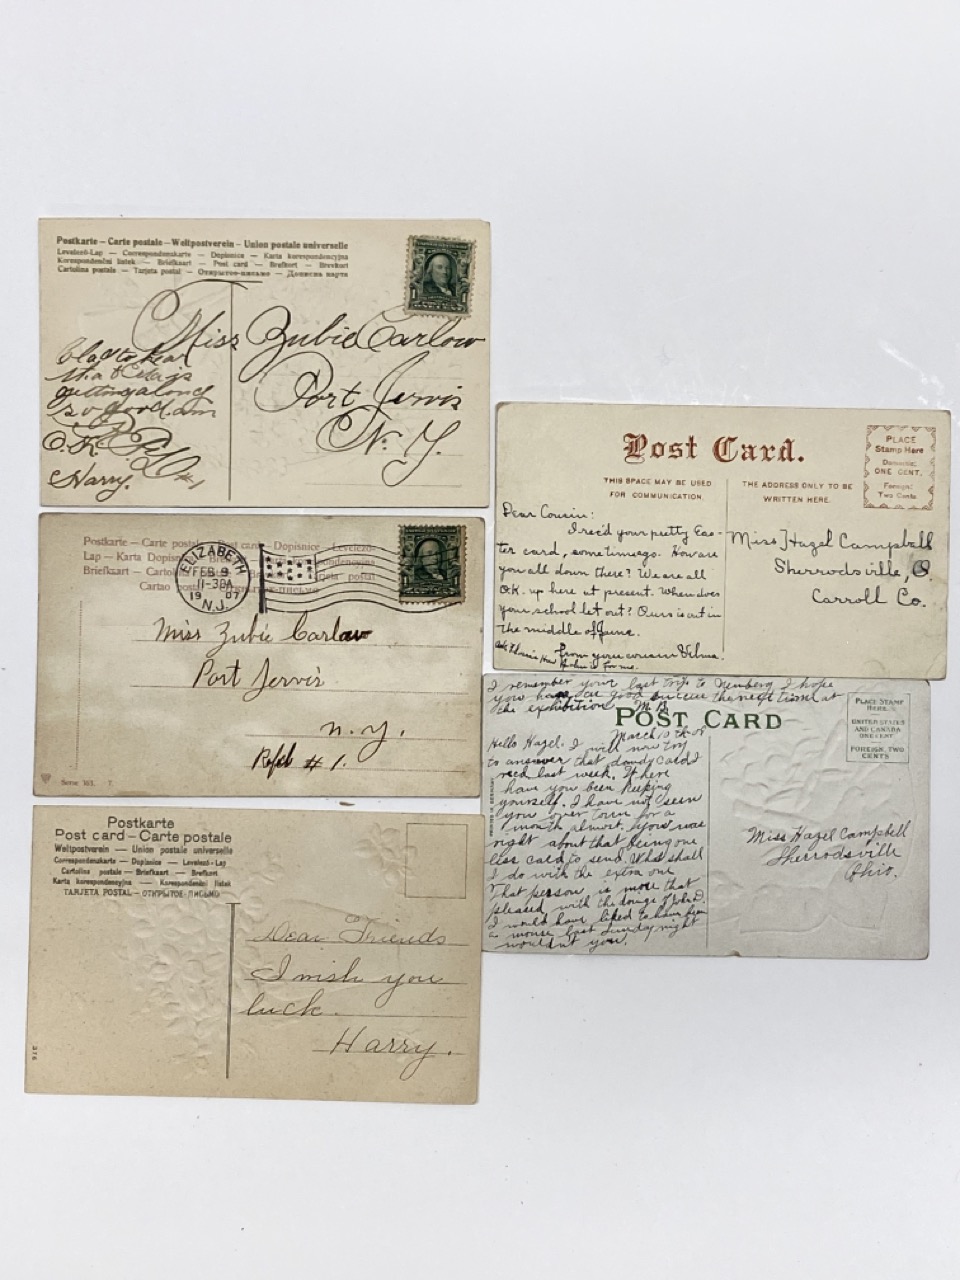 Postkarte – Carte postale – Weltpostverein – Union postale universelle
Levelező-Lap — Correspondenzkarte — Dopisnice — Karta korespondencyjna
Korespondenční lístek — Briefkaart — Post card — Brefkort — Brevkort
Cartolina postale — Tarjeta postal — Открытое письмо — Дописна карта
1 1
Miss Zubie Carlow
Port Jervis
N. Y.
Glad to hear
that
getting along
so good. am
O. K.
Harry.
#1
Postkarte – Carte postale – Post card – Dopisnice – Levelező-
Lap – Karta
Briefkaart –
Cartao
ELIZABETH
FEB 9
11-30A
1907
N.J.
1 1
Miss Zubie Carlow
Port Jervis
n. y.
# 1.
Serie 7
Postkarte
Post card – Carte postale
Weltpostverein — Union postale universelle
Correspondenzkarte — Dopisnice — Levelező-Lap
Cartolina postale — Briefkaart — Brefkort
Karta korespondencyjna — Korespondenční lístek
TARJETA POSTAL — ОТКРЫТОЕ ПИСЬМО
Dear Friends
I wish you
luck.
Harry.
376
Post Card.
PLACE
Stamp Here
Domestic:
ONE CENT.
Foreign:
Two Cents
THIS SPACE MAY BE USED
FOR COMMUNICATION
THE ADDRESS ONLY TO BE
WRITTEN HERE.
Dear Cousin:
I rec'd your pretty Eas-
ter card, sometime ago. How are
you all down there? We are all
O.K. up here at present. When does
your school let out? Ours is out in
the middle of June.
From your cousin Velma.
for me.
Miss Hazel Campbell
Sherrodsville, O.
Carroll Co.
I remember your last trip to Newberg I hope
you have as good success the next time at
the exhibition M B
POST CARD
PLACE STAMP
HERE.
UNITED STATES
AND CANADA
ONE CENT
FOREIGN, TWO
CENTS
PRINTED IN GERMANY
March 10th -08
Hello Hazel. I will now try
to answer that dandy card I
recd last week. Where
have you been keeping
yourself. I have not seen
you over town for a
month almost. You were
right about that being one
less card to send. What shall
I do with the extra one
That person is more that
pleased with the
I would have liked to have been
a mouse last Sunday night
wouldn't you.
Miss Hazel Campbell
Sherrodsville
Ohio.